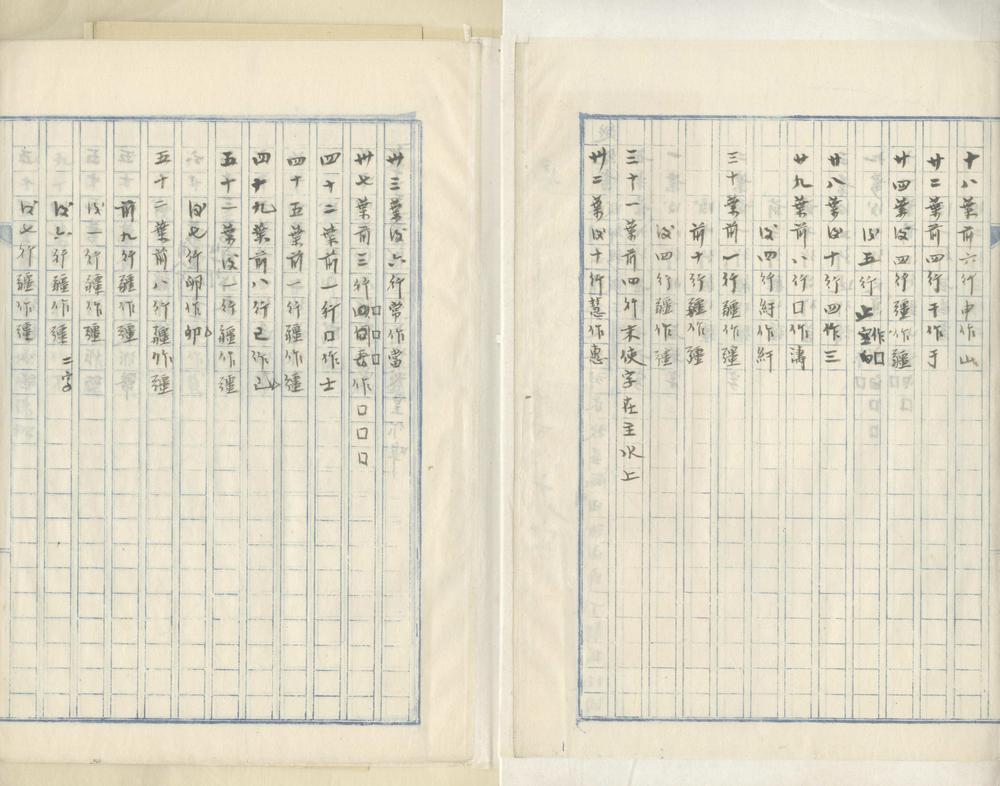 十八葉前六行中作山
廿二葉前四行干作于
廿四葉後四行疆作疆
後五行 作口
廿八葉後十行四作三
廿九葉前八行口作濤
後四行紆作紆
三十葉前一行疆作疆
前十行疆作疆
後四行疆作疆
三十一葉前四行末使字在主水上
卅二葉後十行慧作惠
卅三葉後六行常作當
卅七葉前三行 作口口口
四十二葉前一行口作士
四十五葉前一行疆作疆
四十九葉前八行已作已
五十二葉後一行疆作疆
後七行卯作卯
五十二葉前八行疆作疆
前九行疆作疆
後一行疆作疆
後六行疆作疆 二字
後七行疆作疆